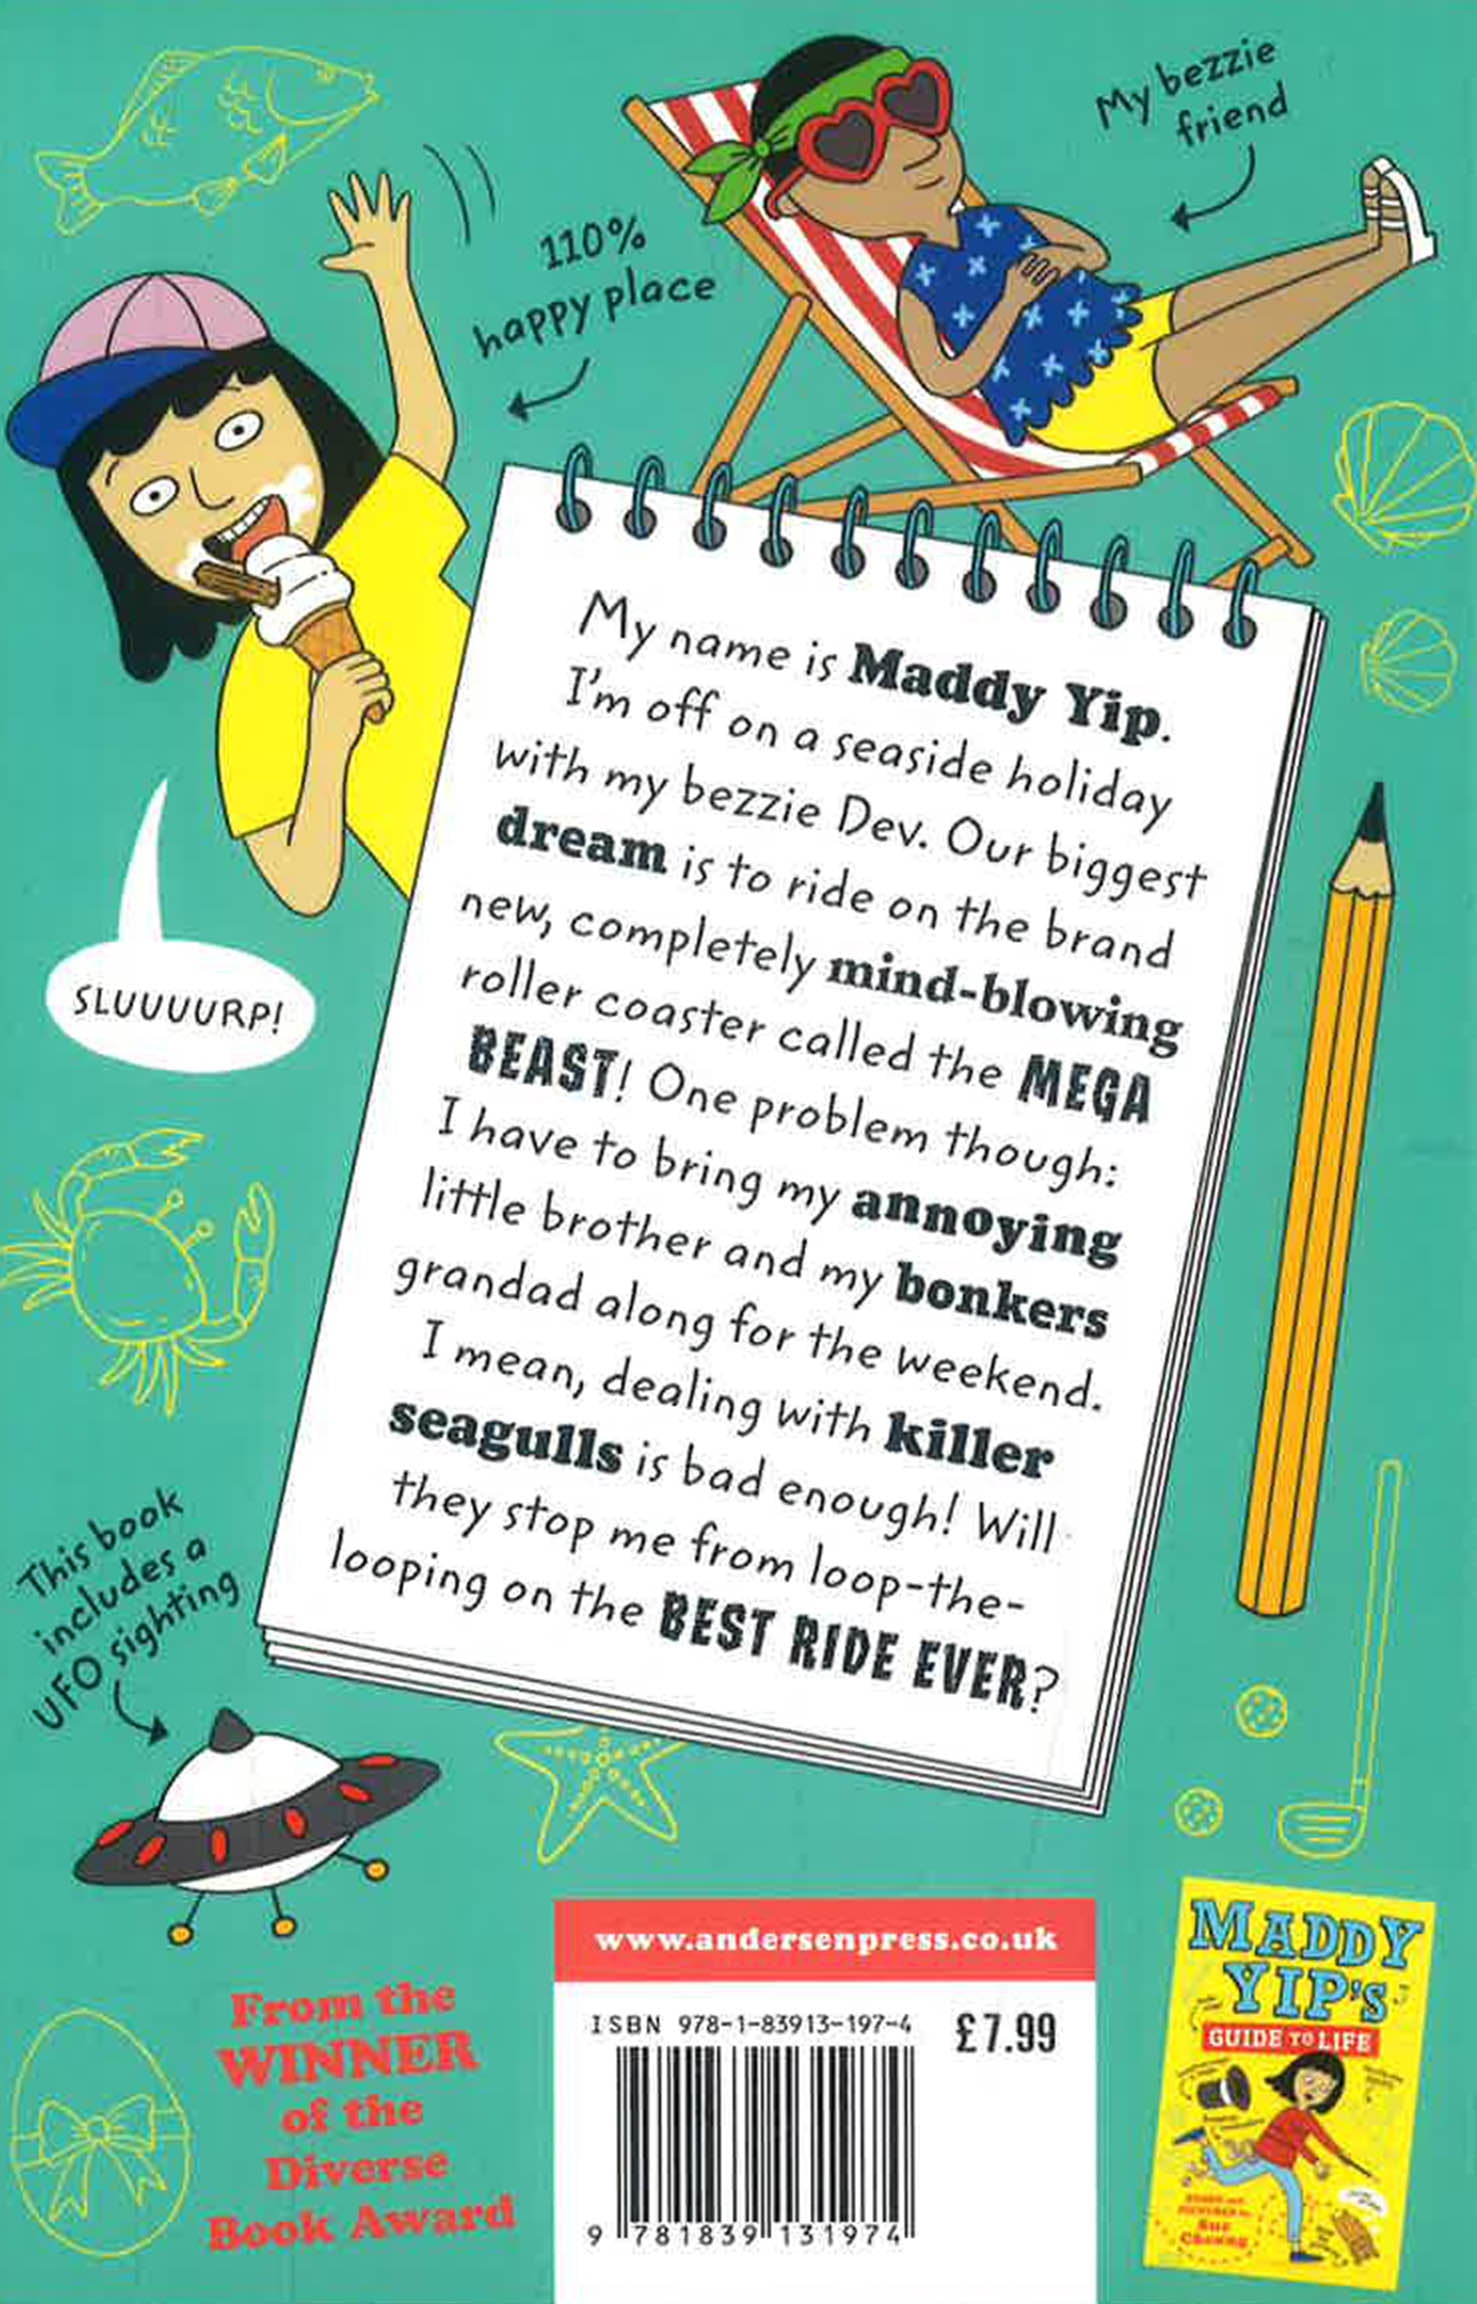 My bezzie
friend
110%
happy place
My name is Maddy Yip.
I'm off on a seaside holiday
with my bezzie Dev. Our biggest
dream is to ride on the brand
new, completely mind-blowing
roller coaster called the MEGA
BEAST! One problem though:
I have to bring my annoying
little brother and my bonkers
grandad along for the weekend.
I mean, dealing with killer
seagulls is bad enough! Will
they stop me from loop-the-
looping on the BEST RIDE EVER?
SLUUUURP!
This book
includes a
UFO sighting
From the
WINNER
of the
Diverse
Book Award
www.andersenpress.co.uk
ISBN 978-1-83913-197-4
£7.99
9 781839 131974
MADDY
YIP'S
GUIDE TO LIFE
Sue
Cheung